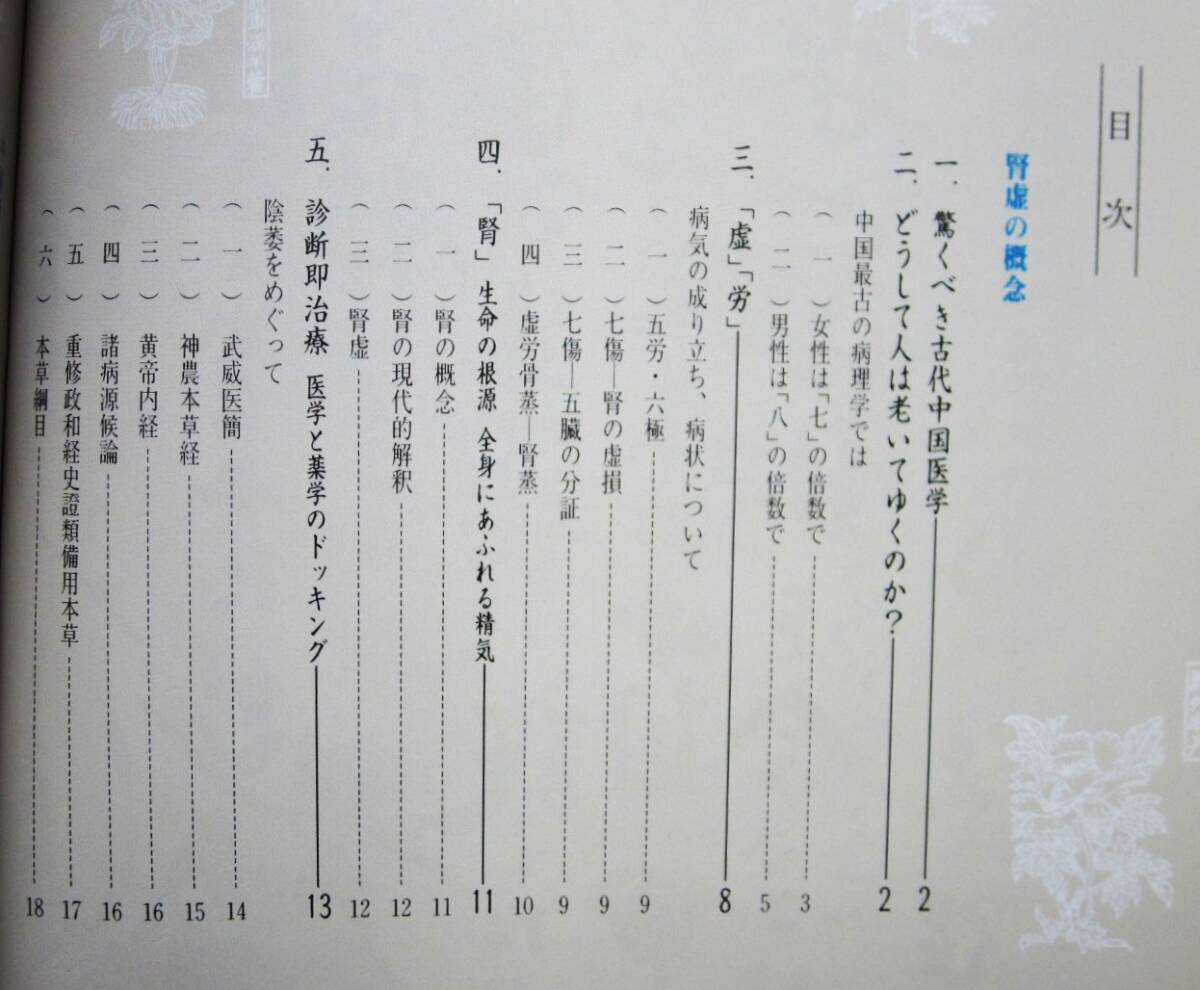 目次
腎虚の概念
一．驚くべき古代中国医学 2
二．どうして人は老いてゆくのか？ 2
中国最古の病理学では
（一）女性は「七」の倍数で 3
（二）男性は「八」の倍数で 5
三．「虚」「労」 8
病気の成り立ち、病状について
（一）五労・六極 9
（二）七傷―腎の虚損 9
（三）七傷―五臓の分証 9
（四）虚労骨蒸―腎蒸 10
四．「腎」生命の根源 全身にあふれる精気 11
（一）腎の概念 11
（二）腎の現代的解釈 12
（三）腎虚 12
五．診断即治療 医学と薬学のドッキング 13
陰萎をめぐって
（一）武威医簡 14
（二）神農本草経 15
（三）黄帝内経 16
（四）諸病源候論 16
（五）重修政和経史證類備用本草 17
（六）本草綱目 18